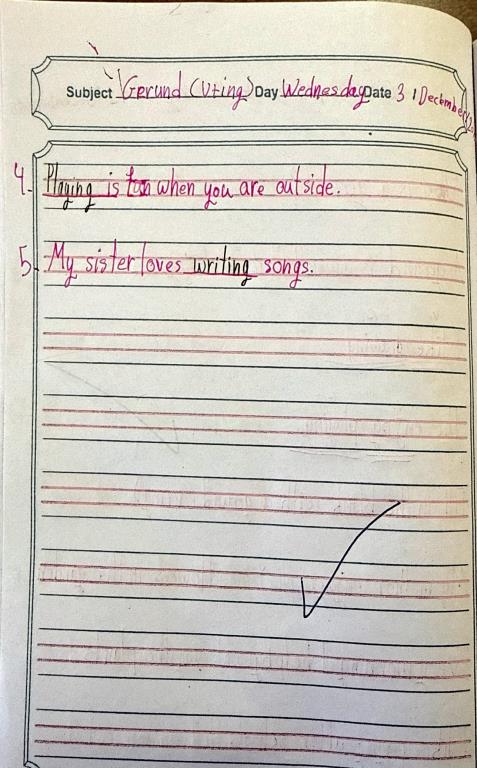 Subject Gerund (Ving) Day Wednesday Date 3 / December
4. Playing is fun when you are outside.
5. My sister loves writing songs.